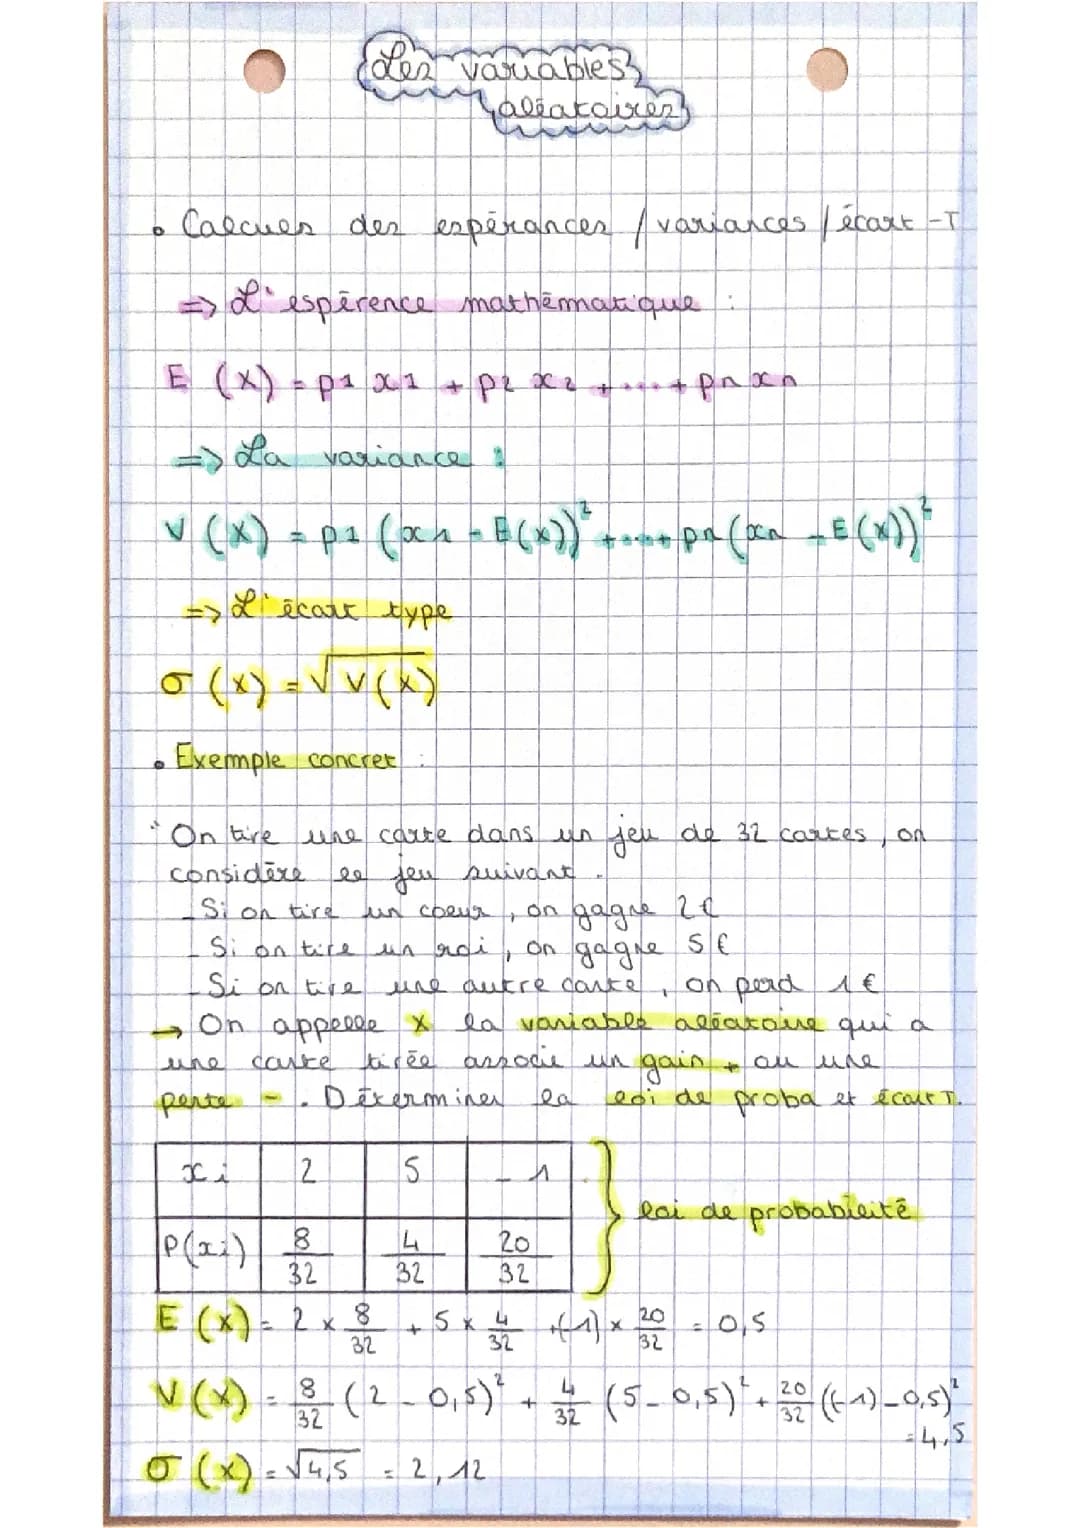 Les variables
aléatoires
• Calculs des espérances / variances / écart-T
=> L'espérence mathématique :
E (X) = p1 x1 + p2 x2 + ... + pn xn
=> La variance :
V (X) = p1 (x1 - E(x))² + ... + pn (xn - E(x))²
=> L'écart type
σ (x) = √V(x)
• Exemple concret :
" On tire une carte dans un jeu de 32 cartes, on
considère le jeu suivant.
- Si on tire un coeur, on gagne 2€
- Si on tire un roi, on gagne 5€
- Si on tire une autre carte, on perd 1€
→ On appelle X la variable aléatoire qui a
une carte tirée associe un gain + ou une
perte -. Déterminer la loi de proba et écart T.
xi 2 5 -1
P(xi) 8/32 4/32 20/32
loi de probabilité
E (X) = 2 x 8/32 + 5 x 4/32 + (-1) x 20/32 = 0,5
V (X) = 8/32 (2 - 0,5)² + 4/32 (5 - 0,5)² + 20/32 ((-1) - 0,5)²
= 4,5
σ (x) = √4,5 = 2,12